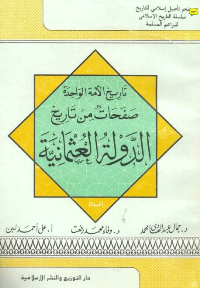 نحو تأصيل إسلامي للتاريخ
سلسلة التاريخ الإسلامي
للبراعم المسلمة
تاريخ الأمة الواحدة
صفحات من تاريخ
الدولة العثمانية
إعداد
د. جمال عبد الهادي محمد
د. وفاء محمد رفعت
أ. علي أحمد لبن
دار التوزيع والنشر الإسلامية